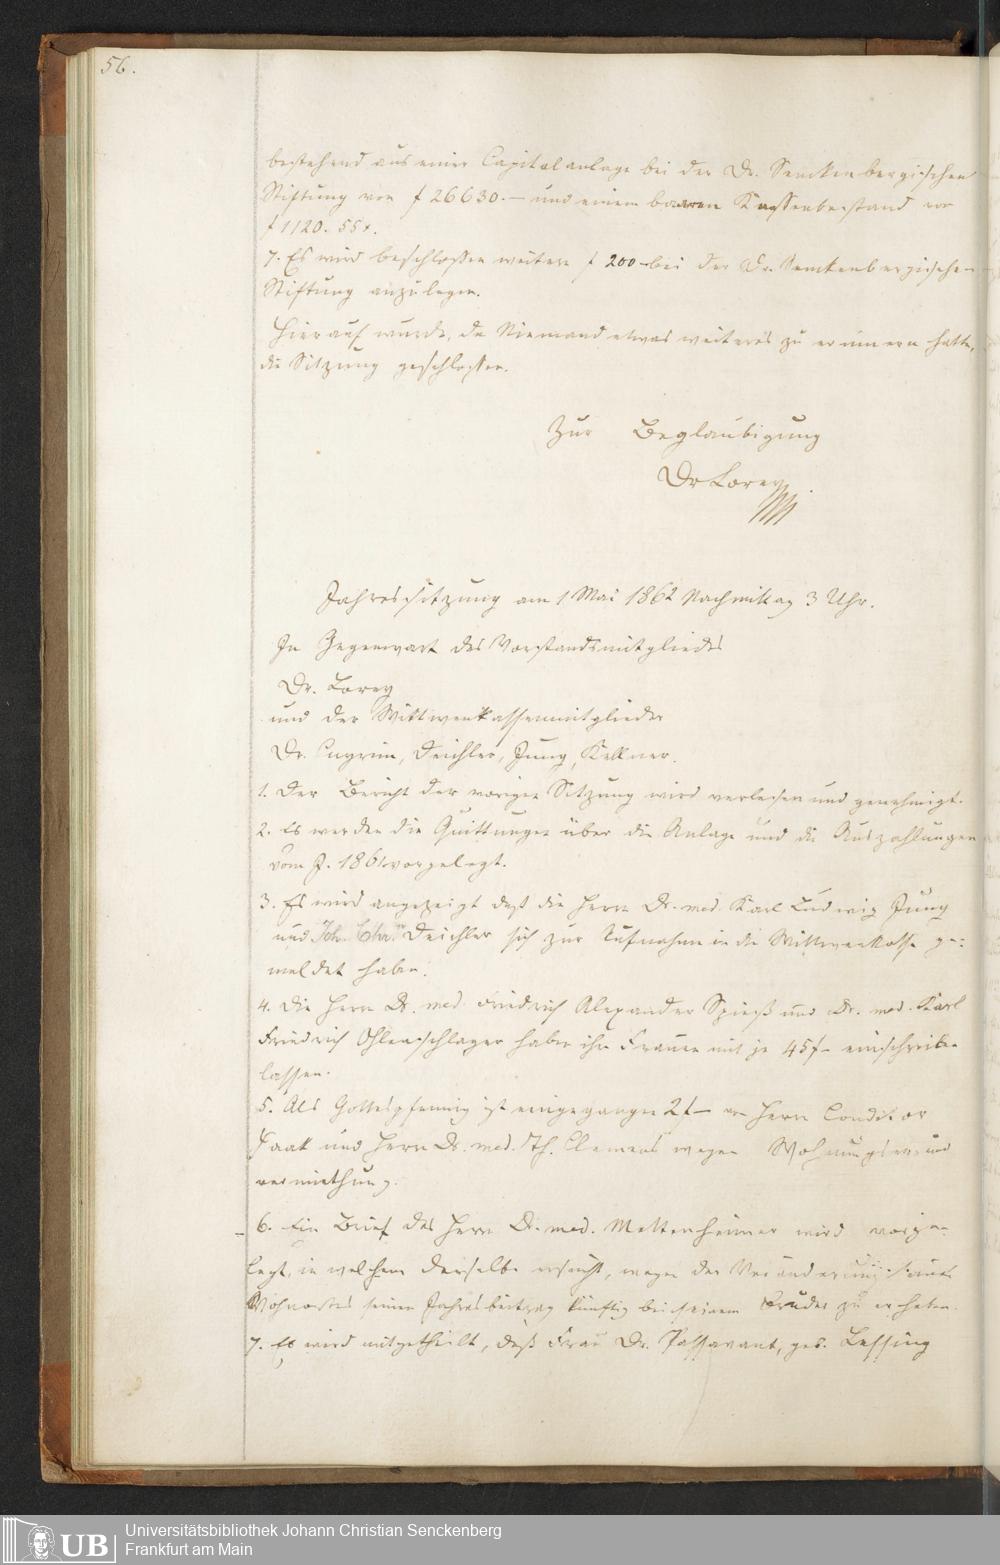 56.
bestehend aus einer Capitalanlage bei der Dr. Senckenbergischen
Stiftung von f 26630.— und einem baaren Kassenbestand von
f 1120. 55x.
7. Es wird beschlossen weitere f 200— bei der Dr. Senckenbergischen
Stiftung anzulegen.
Hierauf wurde, da Niemand etwas weiteres zu erinnern hatte,
die Sitzung geschlossen.
Zur Beglaubigung
Dr Lorey
Jahressitzung am 1 Mai 1862 Nachmittag 3 Uhr.
In Gegenwart des Vorstandsmitgliedes
Dr. Lorey
und der Wittwenkassenmitglieder
Dr. Deichler, Jung, Kellner.
1. Der Bericht der vorigen Sitzung wird verlesen und genehmigt.
2. Es werden die Quittungen über die Anlage und die Auszahlungen
vom J. 1861 vorgelegt.
3. Es wird angezeigt daß die Herrn Dr. med. Karl Ludwig Jung
und Joh. Chr. Deichler sich zur Aufnahme in die Wittwenkasse ge-
meldet haben.
4. Die Herrn Dr. med. Friedrich Alexander Spieß und Dr. med. Karl
Friedrich Ohlenschlager haben ihre Frauen mit je 45f— einschreiben
lassen.
5. Als Gottespfennig ist eingegangen 2f— von Herrn Conditor
und Herrn Dr. med. Th. Clemens wegen
vermiethung.
6. Ein Brief des Herrn Dr. med. Mettenheimer wird vorge-
legt, in welchem derselbe ersucht, wegen der Veränderung seines
Wohnortes seinen Jahresbeitrag künftig bei seinem Bruder zu erheben.
7. Es wird mitgetheilt, daß Frau Dr. Passavant, geb. Lessing
UB
Universitätsbibliothek Johann Christian Senckenberg
Frankfurt am Main